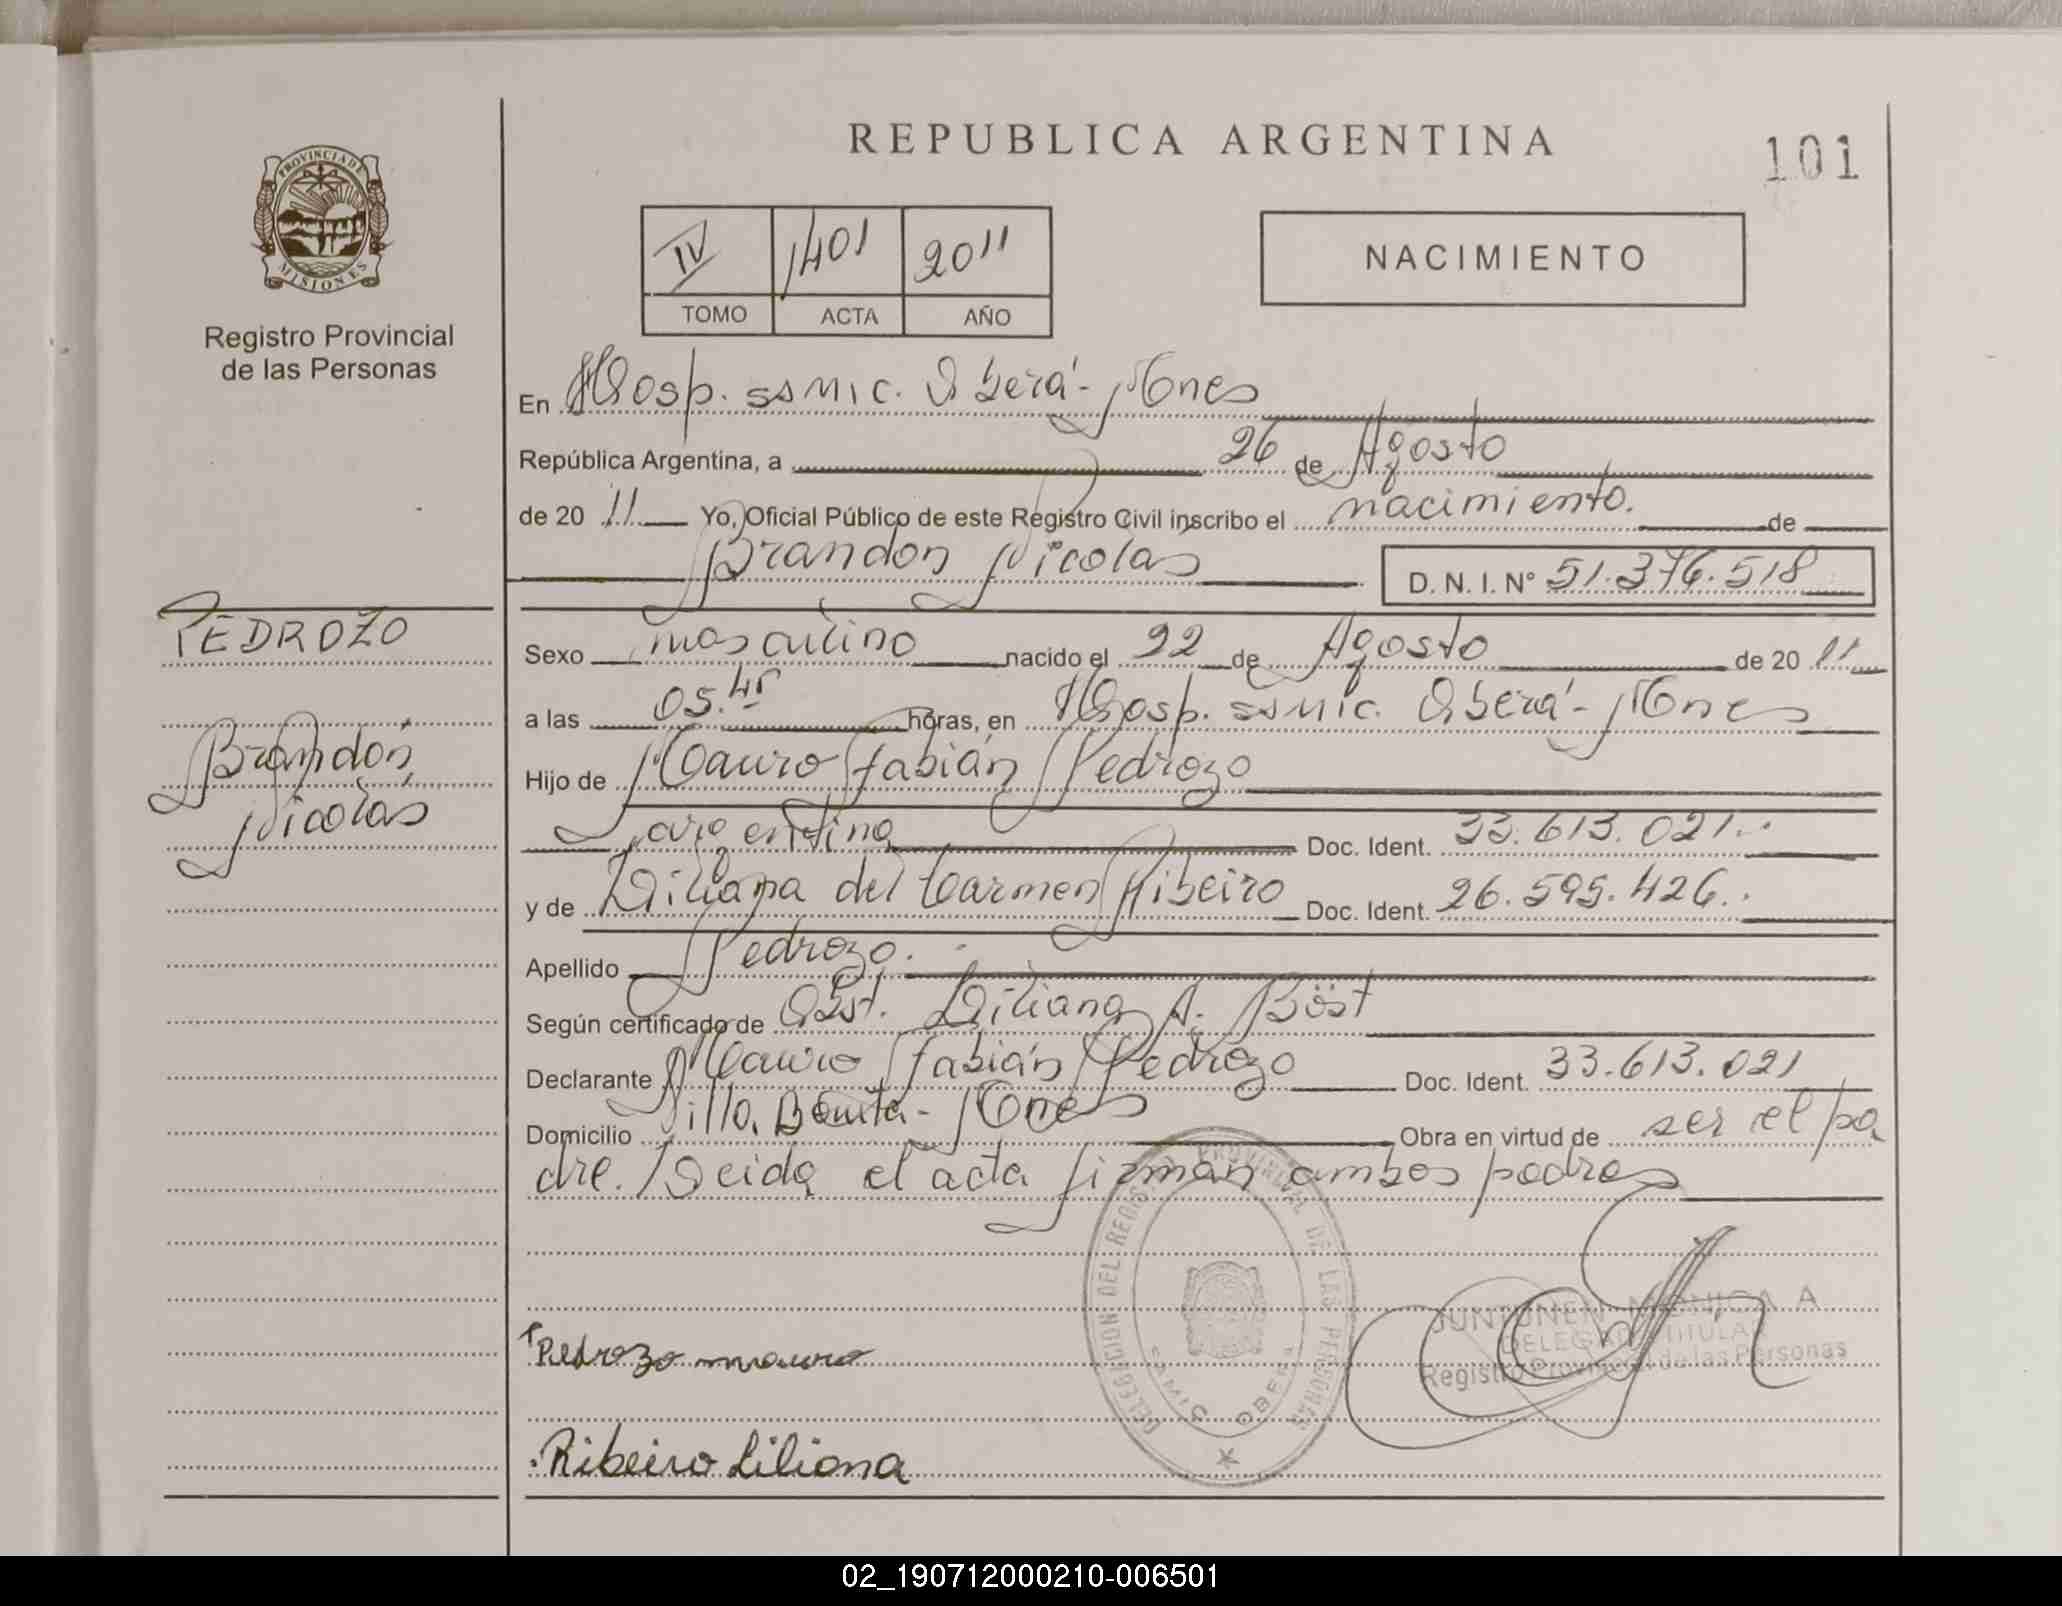 REPUBLICA ARGENTINA
101
PROVINCIA DE
MISIONES
Registro Provincial
de las Personas
IV 1401 2011
TOMO ACTA AÑO
NACIMIENTO
En Hosp. ssmic. Oberá - Mnes
República Argentina, a 26 de Agosto
de 20 11 Yo, Oficial Público de este Registro Civil inscribo el nacimiento. de
Brandon Nicolas
D. N. I. Nº 51.376.518
PEDROZO
Brandon
Nicolas
Sexo masculino nacido el 22 de Agosto de 20 11
a las 05.45 horas, en Hosp. ssmic. Oberá - Mnes
Hijo de Mauro Fabián Pedrozo
argentina Doc. Ident. 33.613.021..
y de Liliana del Carmen Ribeiro Doc. Ident. 26.595.426..
Apellido Pedrozo.
Según certificado de Obst. Liliana A. Böst
Declarante Mauro Fabián Pedrozo Doc. Ident. 33.613.021
Domicilio Villa Bonita - Mnes Obra en virtud de ser el pa
dre. Leida el acta firman ambos padres
DELEGACION DEL REGISTRO PROVINCIAL DE LAS PERSONAS
SAMIC OBERA
JUNTUNEN MONICA A
DELEGADA TITULAR
Registro Provincial de las Personas
Pedrozo mauro
Ribeiro Liliana
02_190712000210-006501